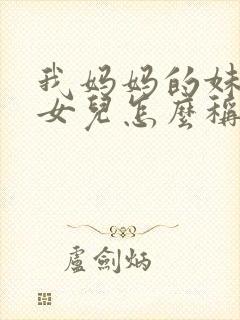 我妈妈的妹
女兒怎麼稱
盧劍炳